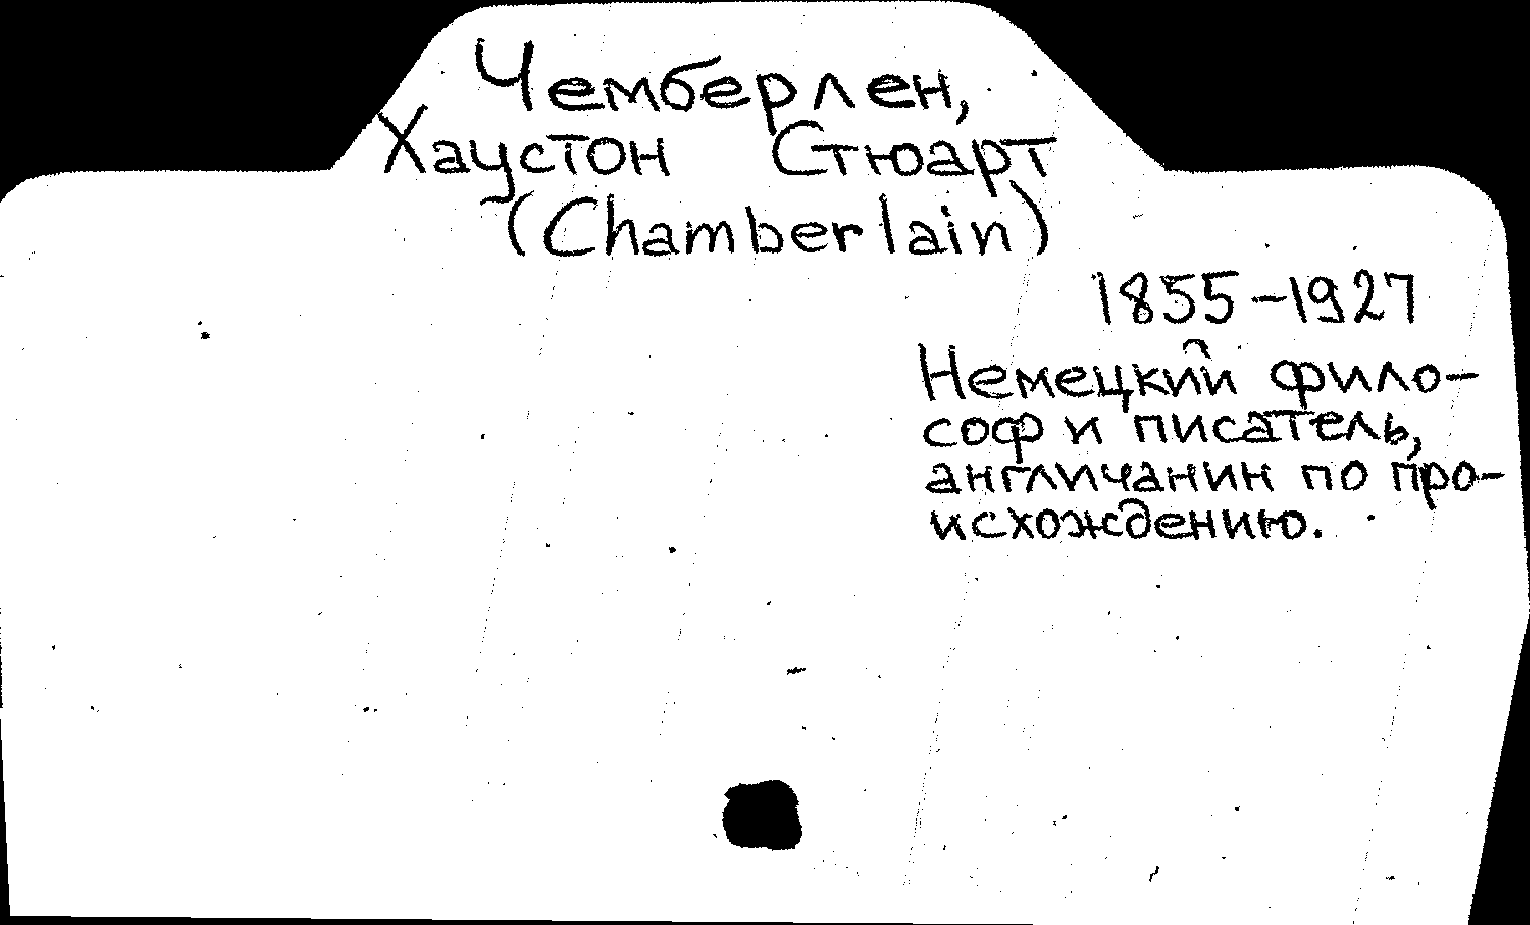 Чемберлен,
Хаустон Стюарт
(Chamberlain)
1855-1927
Немецкий фило-
соф и писатель,
англичанин по про-
исхождению.